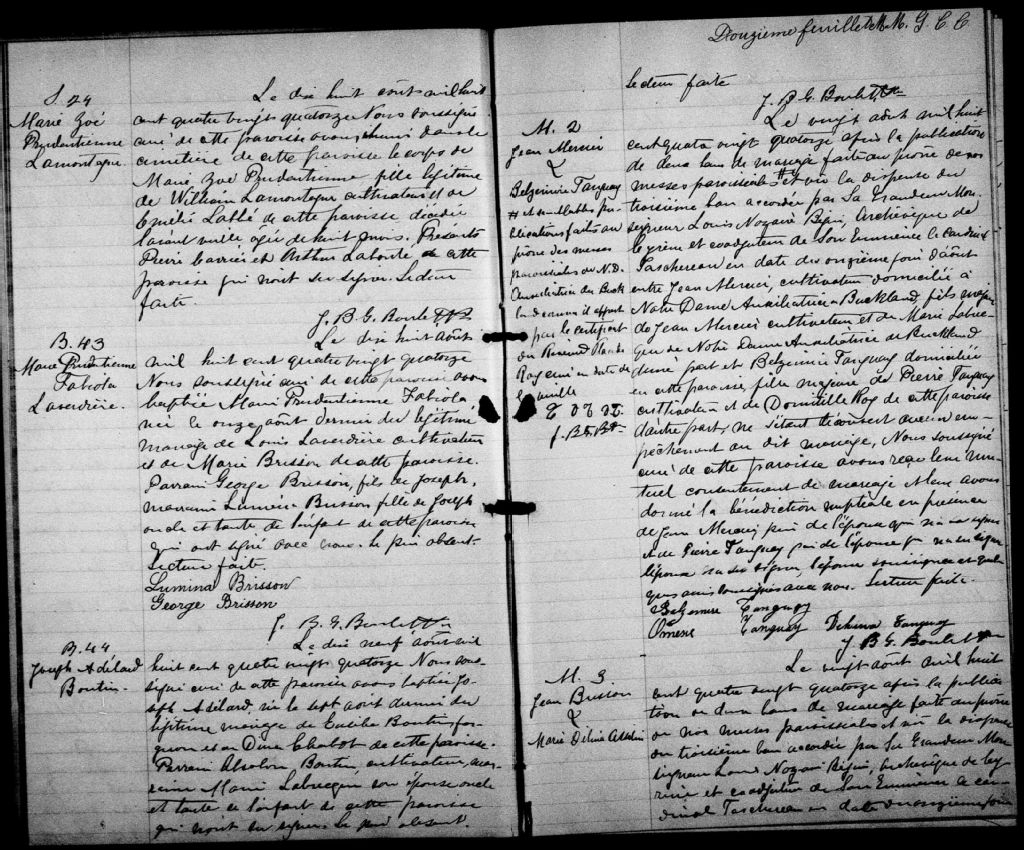 S. 24
Marie Zoé
Prudentienne
Lamontagne.
Le dix huit août mil huit
cent quatre vingt quatorze Nous soussigné
curé de cette paroisse avons inhumé dans le
cimetière de cette paroisse le corps de
Marie Zoé Prudentienne fille légitime
de William Lamontagne cultivateur et de
Emélie Labbé de cette paroisse décédée
l'avant veille âgée de huit mois. Présents
Pierre Carrier et Arthur de cette
paroisse qui n'ont su signer. Lecture
faite.
J. B. G. Boulet Ptre
B. 43
Marie Prudentienne
Fabiola
Laverdière.
Le dix huit août
mil huit cent quatre vingt quatorze
Nous soussigné curé de cette paroisse avons
baptisé Marie Prudentienne Fabiola
née le onze août dernier du légitime
mariage de Louis Laverdière cultivateur
et de Marie Brisson de cette paroisse.
Parrain George Brisson, fils de Joseph,
marraine Luména Brisson fille de Joseph
oncle et tante de l'enfant de cette paroisse
qui ont signé avec nous. Le père absent.
Lecture faite.
Lumina Brisson
George Brisson
J. B. G. Boulet Ptre
B. 44
Joseph Adélard
Boutin.
Le dix neuf août mil
huit cent quatre vingt quatorze Nous sous-
signé curé de cette paroisse avons baptisé Jo-
seph Adélard, né le sept août dernier du
légitime mariage de Eusèbe Boutin for-
geron et de Dina Chabot de cette paroisse.
Parrain Absolon Boutin, cultivateur, mar-
raine Marie Labrecque, son épouse oncle
et tante de l'enfant de cette paroisse
qui n'ont su signer. Le père absent.
Douzième feuillet M. G. C. C.
Lecture faite
J. B. G. Boulet Ptre
M. 2
Jean Mercier
&
Belzémire Tanguay
# et semblables pu-
blications faites au
prône des messes
paroissiales de N. D.
Auxiliatrice de Buck
land comme il appert
par le certificat
du Révérend
curé en date de
J. B. G. B. Ptre
Le vingt août mil huit
cent quatre vingt quatorze après la publication
de deux bans de mariage faite au prône de nos
messes paroissiales # et vu la dispense du
troisième ban accordée par Sa Grandeur Mon-
seigneur Louis Nazaire Bégin, Archevêque de
Cyrène et coadjuteur de Son Eminence le Cardinal
Taschereau en date du onzième jour d'août
entre Jean Mercier, cultivateur domicilié à
Notre Dame Auxiliatrice de Buckland, fils majeur
de Jean Mercier cultivateur et de Marie Labrec-
que de Notre Dame Auxiliatrice de Buckland
d'une part et Belzémire Tanguay domiciliée
en cette paroisse, fille majeure de Pierre Tanguay
cultivateur et de Domitille Roy de cette paroisse
d'autre part, ne s'étant découvert aucun em-
pêchement au dit mariage, Nous soussigné
curé de cette paroisse avons reçu leur mu-
tuel consentement de mariage & leur avons
donné la bénédiction nuptiale en présence
de Jean Mercier père de l'époux qui n'a su signer
et de Pierre Tanguay père de l'épouse qui n'a su signer
l'époux n'a su signer, l'épouse soussignée et quel-
ques amis soussignés avec nous. Lecture faite.
Belzemire Tanguay
Tanguay Delvina Tanguay
J. B. G. Boulet Ptre
M. 3
Jean Brisson
&
Marie Délina Asselin
Le vingt août mil huit
cent quatre vingt quatorze après la publica-
tion de deux bans de mariage faite au prône
de nos messes paroissiales et vu la dispense
du troisième ban accordée par Sa Grandeur Mon-
seigneur Louis Nazaire Bégin, archevêque de Cy-
rène et coadjuteur de Son Eminence le Car-
dinal Taschereau en date du onzième jour